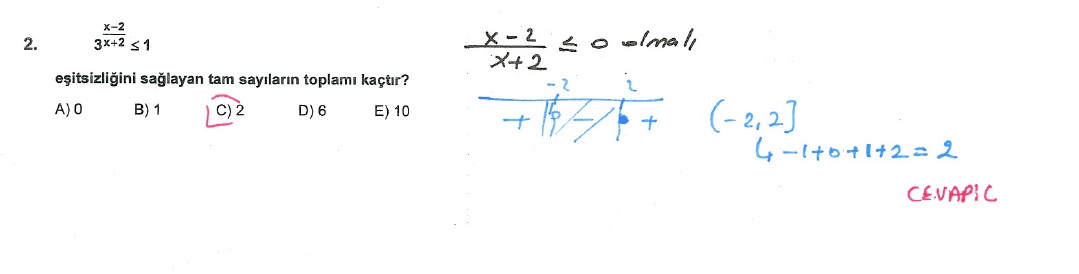 2. 3^((x−2)/(x+2)) ≤ 1
eşitsizliğini sağlayan tam sayıların toplamı kaçtır?
A) 0 B) 1 C) 2 D) 6 E) 10
(x − 2)/(x + 2) ≤ 0 olmalı
−2 2
+ − +
(−2, 2]
↳ −1+0+1+2 = 2
CEVAP C